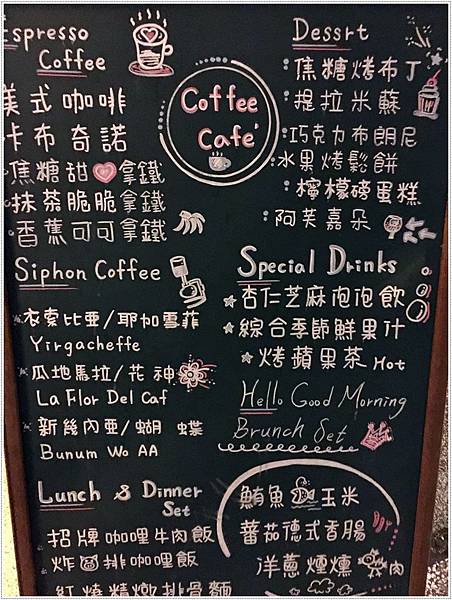 Espresso
Coffee
美式咖啡
卡布奇諾
焦糖甜拿鐵
抹茶脆脆拿鐵
香蕉可可拿鐵
Siphon Coffee
衣索比亞/耶加雪菲
Yirgacheffe
瓜地馬拉/花神
La Flor Del Caf
新幾內亞/蝴蝶
Bunum Wo AA
Lunch & Dinner
Set
招牌咖哩牛肉飯
炸排咖哩飯
紅燒精燉排骨麵
Coffee
Cafe'
Dessrt
焦糖烤布丁
提拉米蘇
巧克力布朗尼
水果烤鬆餅
檸檬磅蛋糕
阿芙嘉朵
Special Drinks
杏仁芝麻泡泡飲
綜合季節鮮果汁
烤蘋果茶 Hot
Hello Good Morning
Brunch Set
鮪魚玉米
蕃茄德式香腸
洋蔥煙燻肉